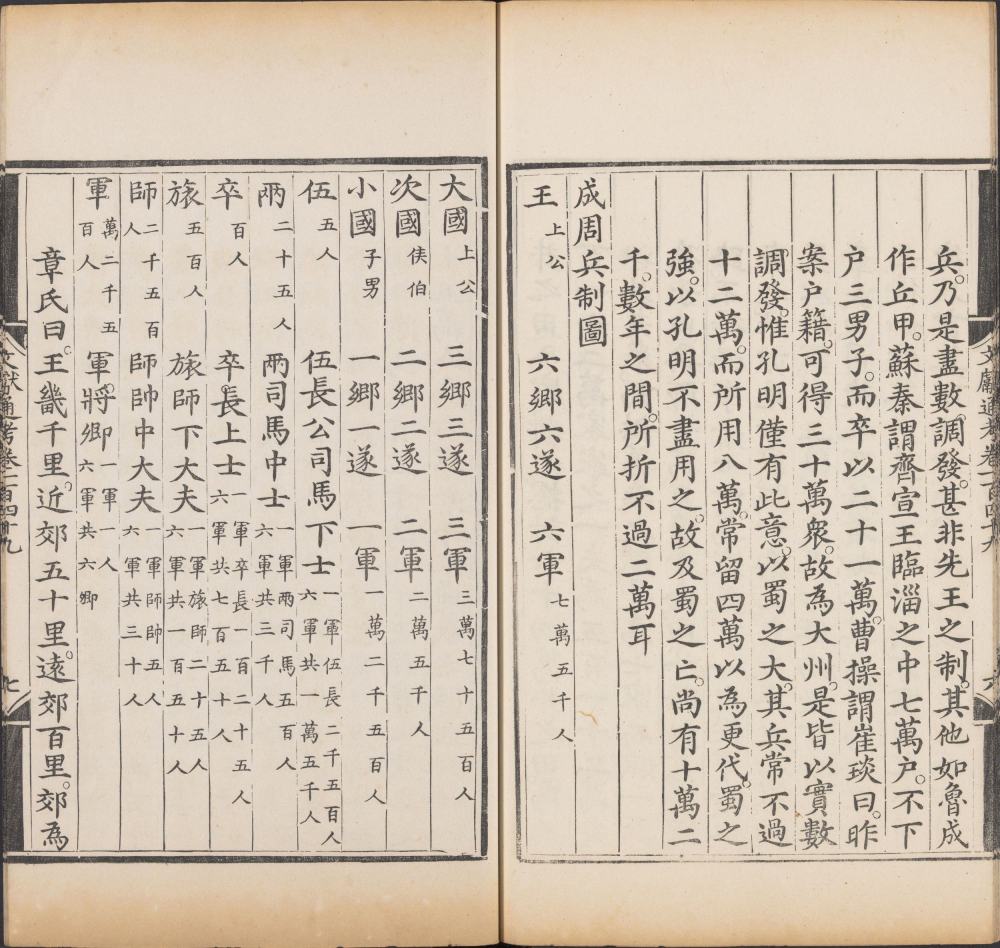 兵乃是盡數調發甚非先王之制其他如魯成
作丘甲蘇秦謂齊宣王臨淄之中七萬戶不下
户三男子而卒以二十一萬曹操謂崔琰曰昨
案户籍可得三十萬衆故為大州是皆以實數
調發惟孔明僅有此意以蜀之大其兵常不過
十二萬而所用八萬常留四萬以為更代蜀之
強以孔明不盡用之故及蜀之亡尚有十萬二
千數年之間所折不過二萬耳
成周兵制圖
王上公 六鄉六遂 六軍七萬五千人
大國上公 三鄉三遂 三軍三萬七十五百人
次國侯伯 二鄉二遂 二軍二萬五千人
小國子男 一鄉一遂 一軍一萬二千五百人
伍五人 伍長公司馬下士一軍伍長二千五百人六軍共一萬五千人
兩二十五人 兩司馬中士一軍兩司馬五百人六軍共三千人
卒百人 卒長上士一軍卒長一百二十五人六軍共七百五十人
旅五百人 旅師下大夫一軍旅師二十五人六軍共一百五十人
師二千五百人 師帥中大夫一軍師帥五人六軍共三十人
軍萬二千五百人 軍將卿一軍一人六軍共六卿
章氏曰王畿千里近郊五十里遠郊百里郊為
文獻通考卷一百四十九 七